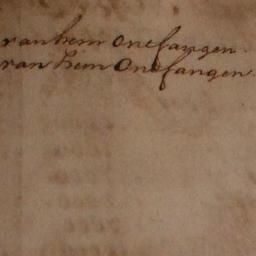 van hem Ontfangen.
van hem Ontfangen.